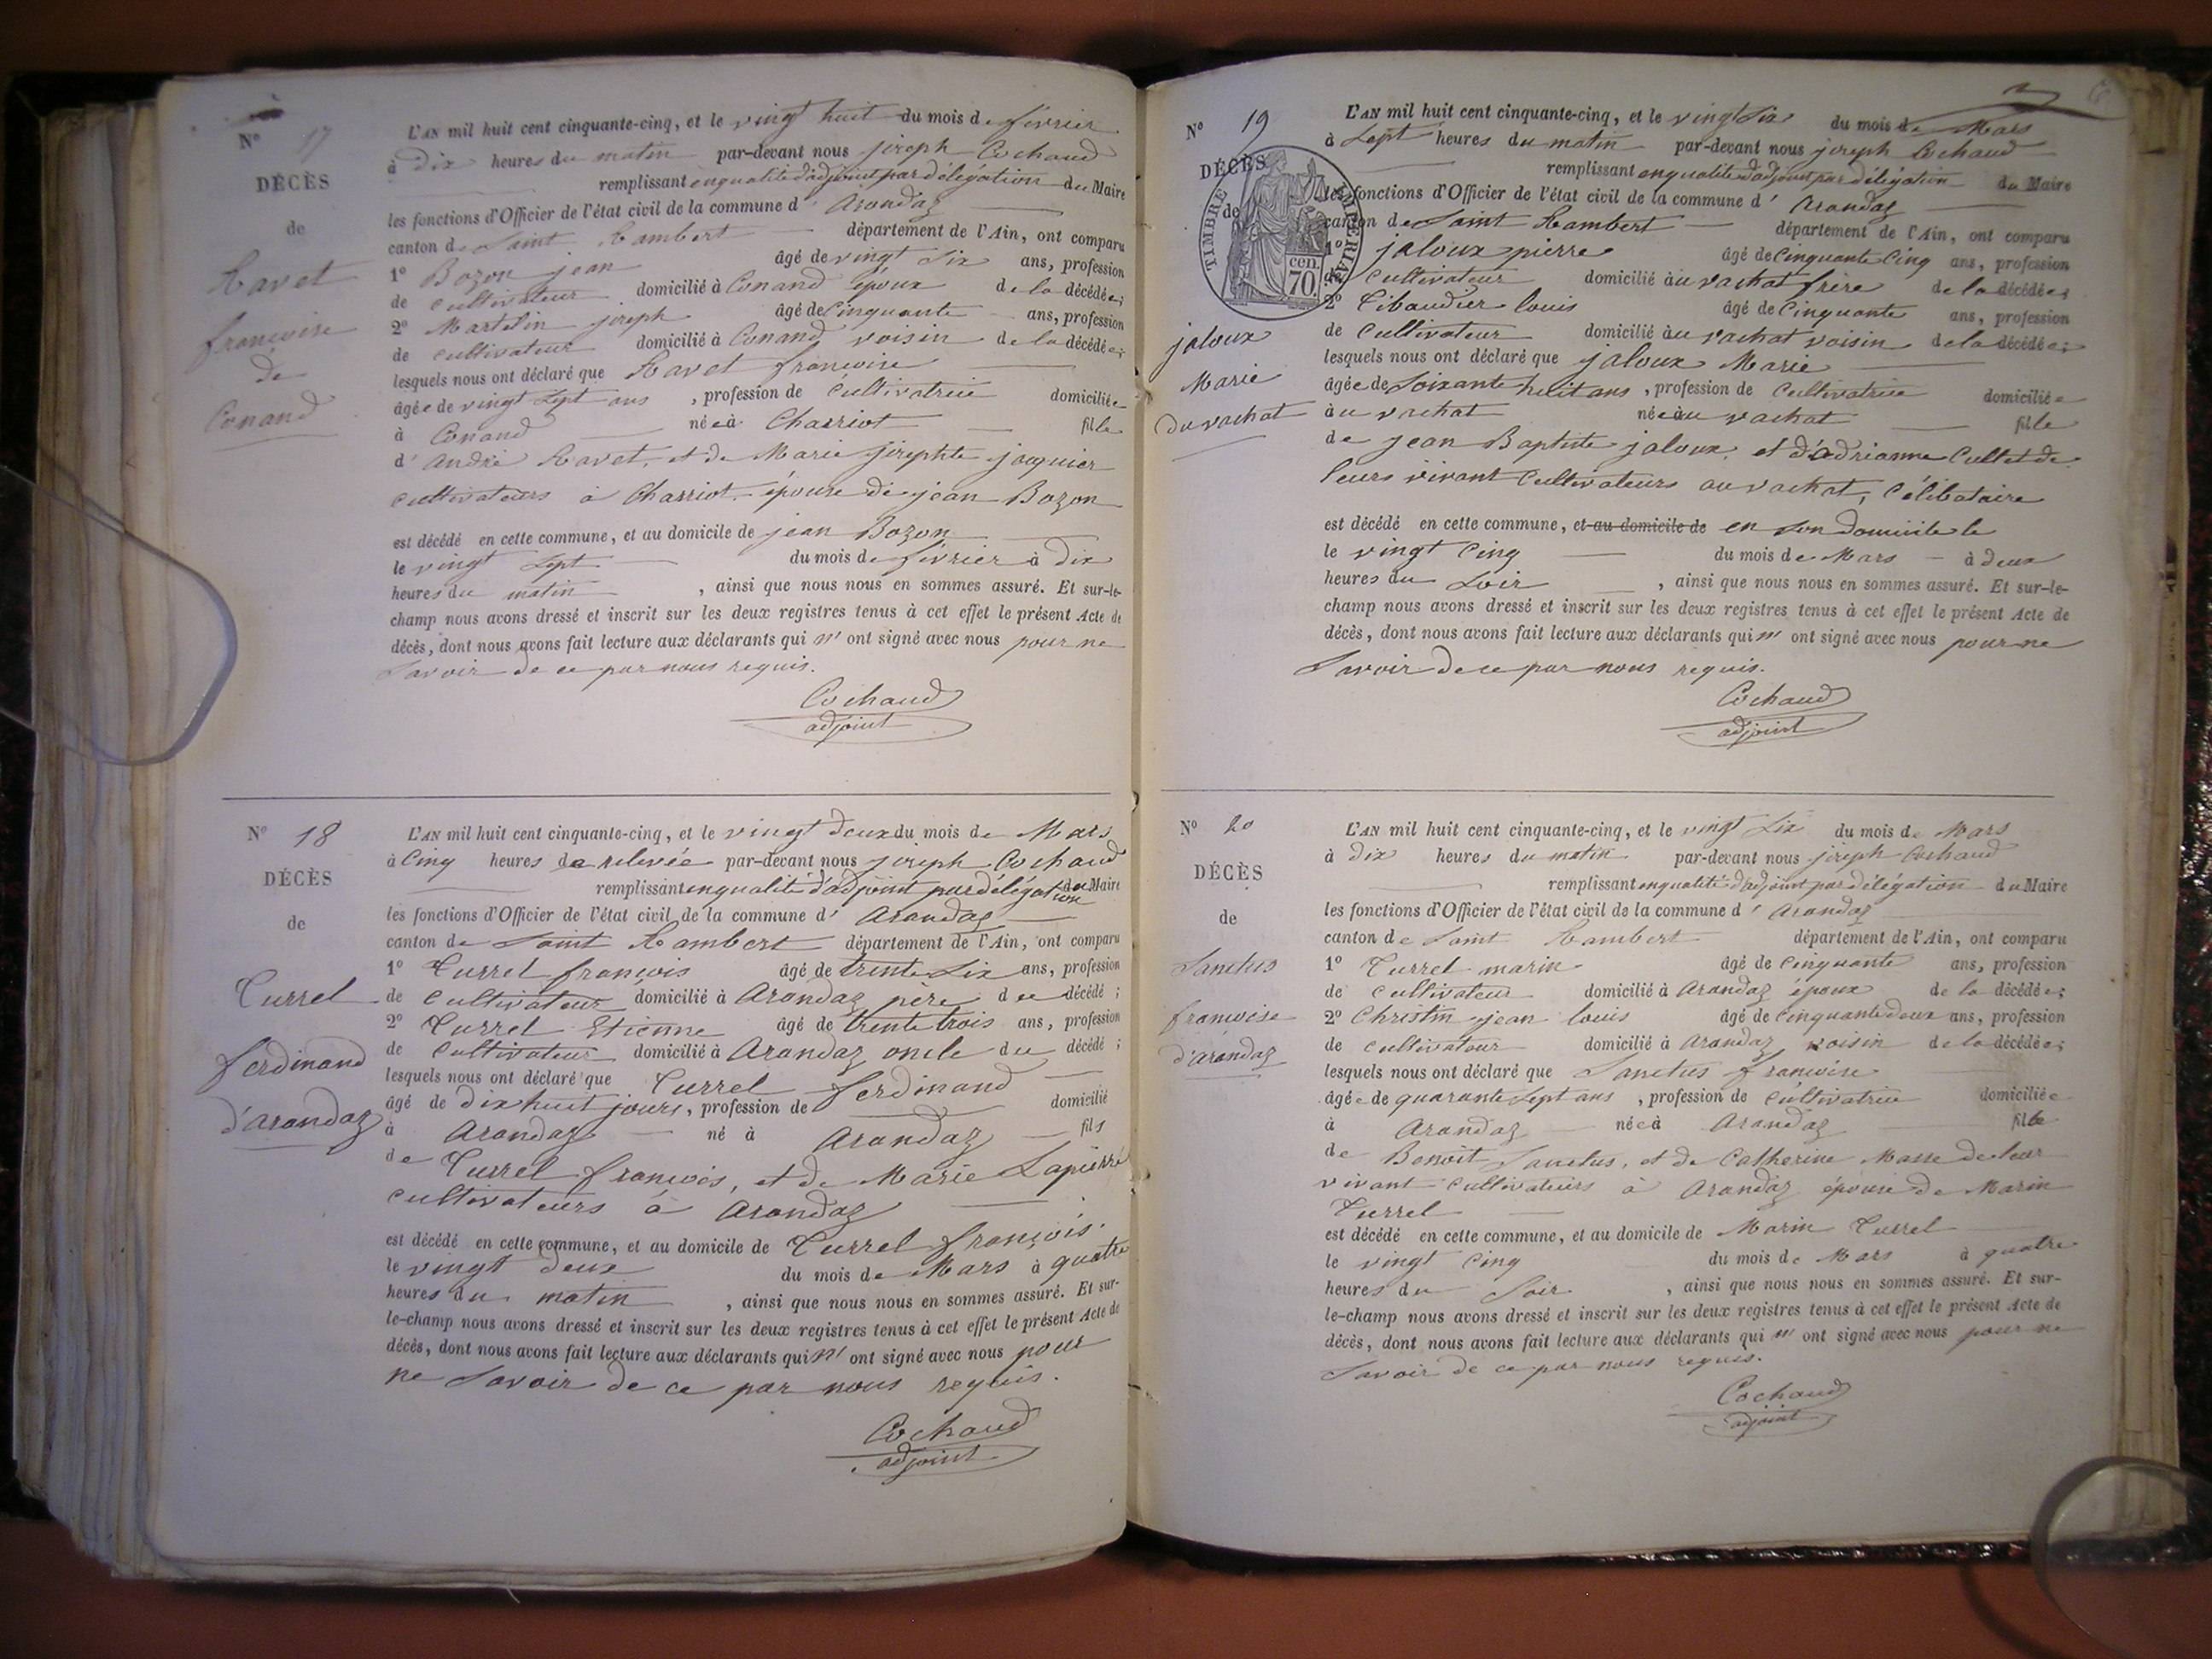 Nº 17
DÉCÈS
de
Ravet
françoise
de
Conand
L'AN mil huit cent cinquante-cinq, et le vingt huit du mois de février
à Dix heures du matin par-devant nous joseph Cochaud
remplissant en qualité d'adjoint par délégation du Maire
les fonctions d'Officier de l'état civil de la commune d' Arandaz
canton de Saint Rambert département de l'Ain, ont comparu
1º Bozon jean âgé de vingt Six ans, profession
de Cultivateur domicilié à Conand époux de la décédée;
2º Martelin joseph âgé de Cinquante ans, profession
de cultivateur domicilié à Conand voisin de la décédée;
lesquels nous ont déclaré que Ravet françoise
âgée de vingt Sept ans , profession de Cultivatrice domiciliée
à Conand née à Charriot fille
d' André Ravet, et de Marie josephte jacquier
cultivateurs à Charriot épouse de jean Bozon
est décédé en cette commune, et au domicile de jean Bozon
le vingt Sept du mois de février à Dix
heures du matin , ainsi que nous nous en sommes assuré. Et sur-le-
champ nous avons dressé et inscrit sur les deux registres tenus à cet effet le présent Acte de
décès, dont nous avons fait lecture aux déclarants qui n' ont signé avec nous pour ne
Savoir de ce par nous requis.
Cochaud
adjoint
Nº 18
DÉCÈS
de
Currel
ferdinand
d'arandaz
L'AN mil huit cent cinquante-cinq, et le vingt deux du mois de Mars
à Cinq heures de relevée par-devant nous joseph Cochaud
remplissant en qualité d'adjoint par délégation du Maire
les fonctions d'Officier de l'état civil de la commune d' Arandaz
canton de Saint Rambert département de l'Ain, ont comparu
1º Currel françois âgé de trente Six ans, profession
de Cultivateur domicilié à Arandaz père du décédé;
2º Currel Etienne âgé de trente trois ans, profession
de Cultivateur domicilié à Arandaz oncle du décédé;
lesquels nous ont déclaré que Currel ferdinand
âgé de dix huit jours, profession de domicilié
à Arandaz né à Arandaz fils
de Currel françois, et de Marie Lapierre
Cultivateurs à Arandaz
est décédé en cette commune, et au domicile de Currel françois.
le vingt deux du mois de Mars à quatre
heures du matin , ainsi que nous nous en sommes assuré. Et sur-
le-champ nous avons dressé et inscrit sur les deux registres tenus à cet effet le présent Acte de
décès, dont nous avons fait lecture aux déclarants qui n' ont signé avec nous pour
ne Savoir de ce par nous requis.
Cochaud
adjoint
Nº 19
DÉCÈS
de
TIMBRE IMPERIAL
70 cen.
jaloux
Marie
du vachat
L'AN mil huit cent cinquante-cinq, et le vingt Six du mois de Mars
à Sept heures du matin par-devant nous joseph Cochaud
remplissant en qualité d'adjoint par délégation du Maire
les fonctions d'Officier de l'état civil de la commune d' Arandaz
canton de Saint Rambert département de l'Ain, ont comparu
1º jaloux pierre âgé de Cinquante Cinq ans, profession
de Cultivateur domicilié àu vachat frère de la décédée;
2º Tibaudier louis âgé de Cinquante ans, profession
de Cultivateur domicilié àu vachat voisin de la décédée;
lesquels nous ont déclaré que jaloux Marie
âgée de Soixante huit ans, profession de Cultivatrice domiciliée
àu vachat née àu vachat fille
de jean Baptiste jaloux, et d'adrianne Cultet de
leurs vivant Cultivateurs au vachat, Célibataire
est décédé en cette commune, et au domicile de en Son domicile le
le vingt Cinq du mois de Mars à deux
heures du Soir , ainsi que nous nous en sommes assuré. Et sur-le-
champ nous avons dressé et inscrit sur les deux registres tenus à cet effet le présent Acte de
décès, dont nous avons fait lecture aux déclarants qui n' ont signé avec nous pour ne
Savoir de ce par nous requis.
Cochaud
adjoint
Nº 20
DÉCÈS
de
Sanctus
françoise
d'arandaz
L'AN mil huit cent cinquante-cinq, et le vingt Six du mois de Mars
à dix heures du matin par-devant nous joseph Cochaud
remplissant en qualité d'adjoint par délégation du Maire
les fonctions d'Officier de l'état civil de la commune d' Arandaz
canton de Saint Rambert département de l'Ain, ont comparu
1º Currel marin âgé de Cinquante ans, profession
de Cultivateur domicilié à Arandaz époux de la décédée;
2º Christin jean louis âgé de Cinquante deux ans, profession
de Cultivateur domicilié à Arandaz voisin de la décédée;
lesquels nous ont déclaré que Sanctus françoise
âgée de quarante Sept ans , profession de Cultivatrice domiciliée
à Arandaz née à Arandaz fille
de Benoit Sanctus, et de Catherine Masse de leur
vivant Cultivateurs à Arandaz épouse de Marin
Currel
est décédé en cette commune, et au domicile de Marin Currel
le vingt Cinq du mois de Mars à quatre
heures du Soir , ainsi que nous nous en sommes assuré. Et sur-
le-champ nous avons dressé et inscrit sur les deux registres tenus à cet effet le présent Acte de
décès, dont nous avons fait lecture aux déclarants qui n' ont signé avec nous pour ne
Savoir de ce par nous requis.
Cochaud
adjoint